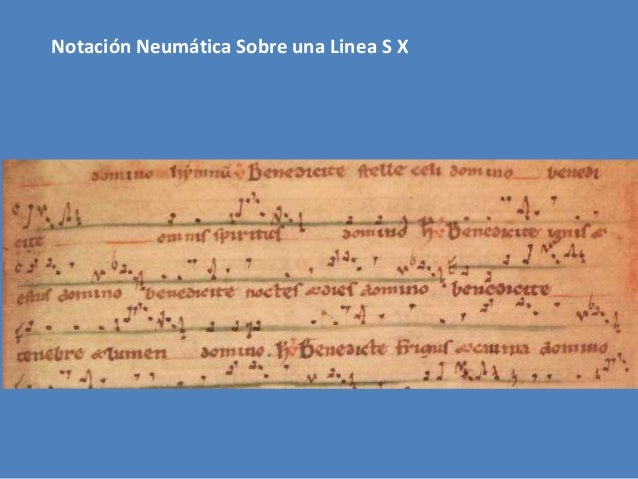 Notación Neumática Sobre una Linea S X
domino hymnū Benedicite stelle celi domino benedi
cite omnis spiritus domino Benedicite ignis &
estus domino benedicite noctes & dies domino benedicite
tenebre & lumen domino. Benedicte frigus & cauma domino